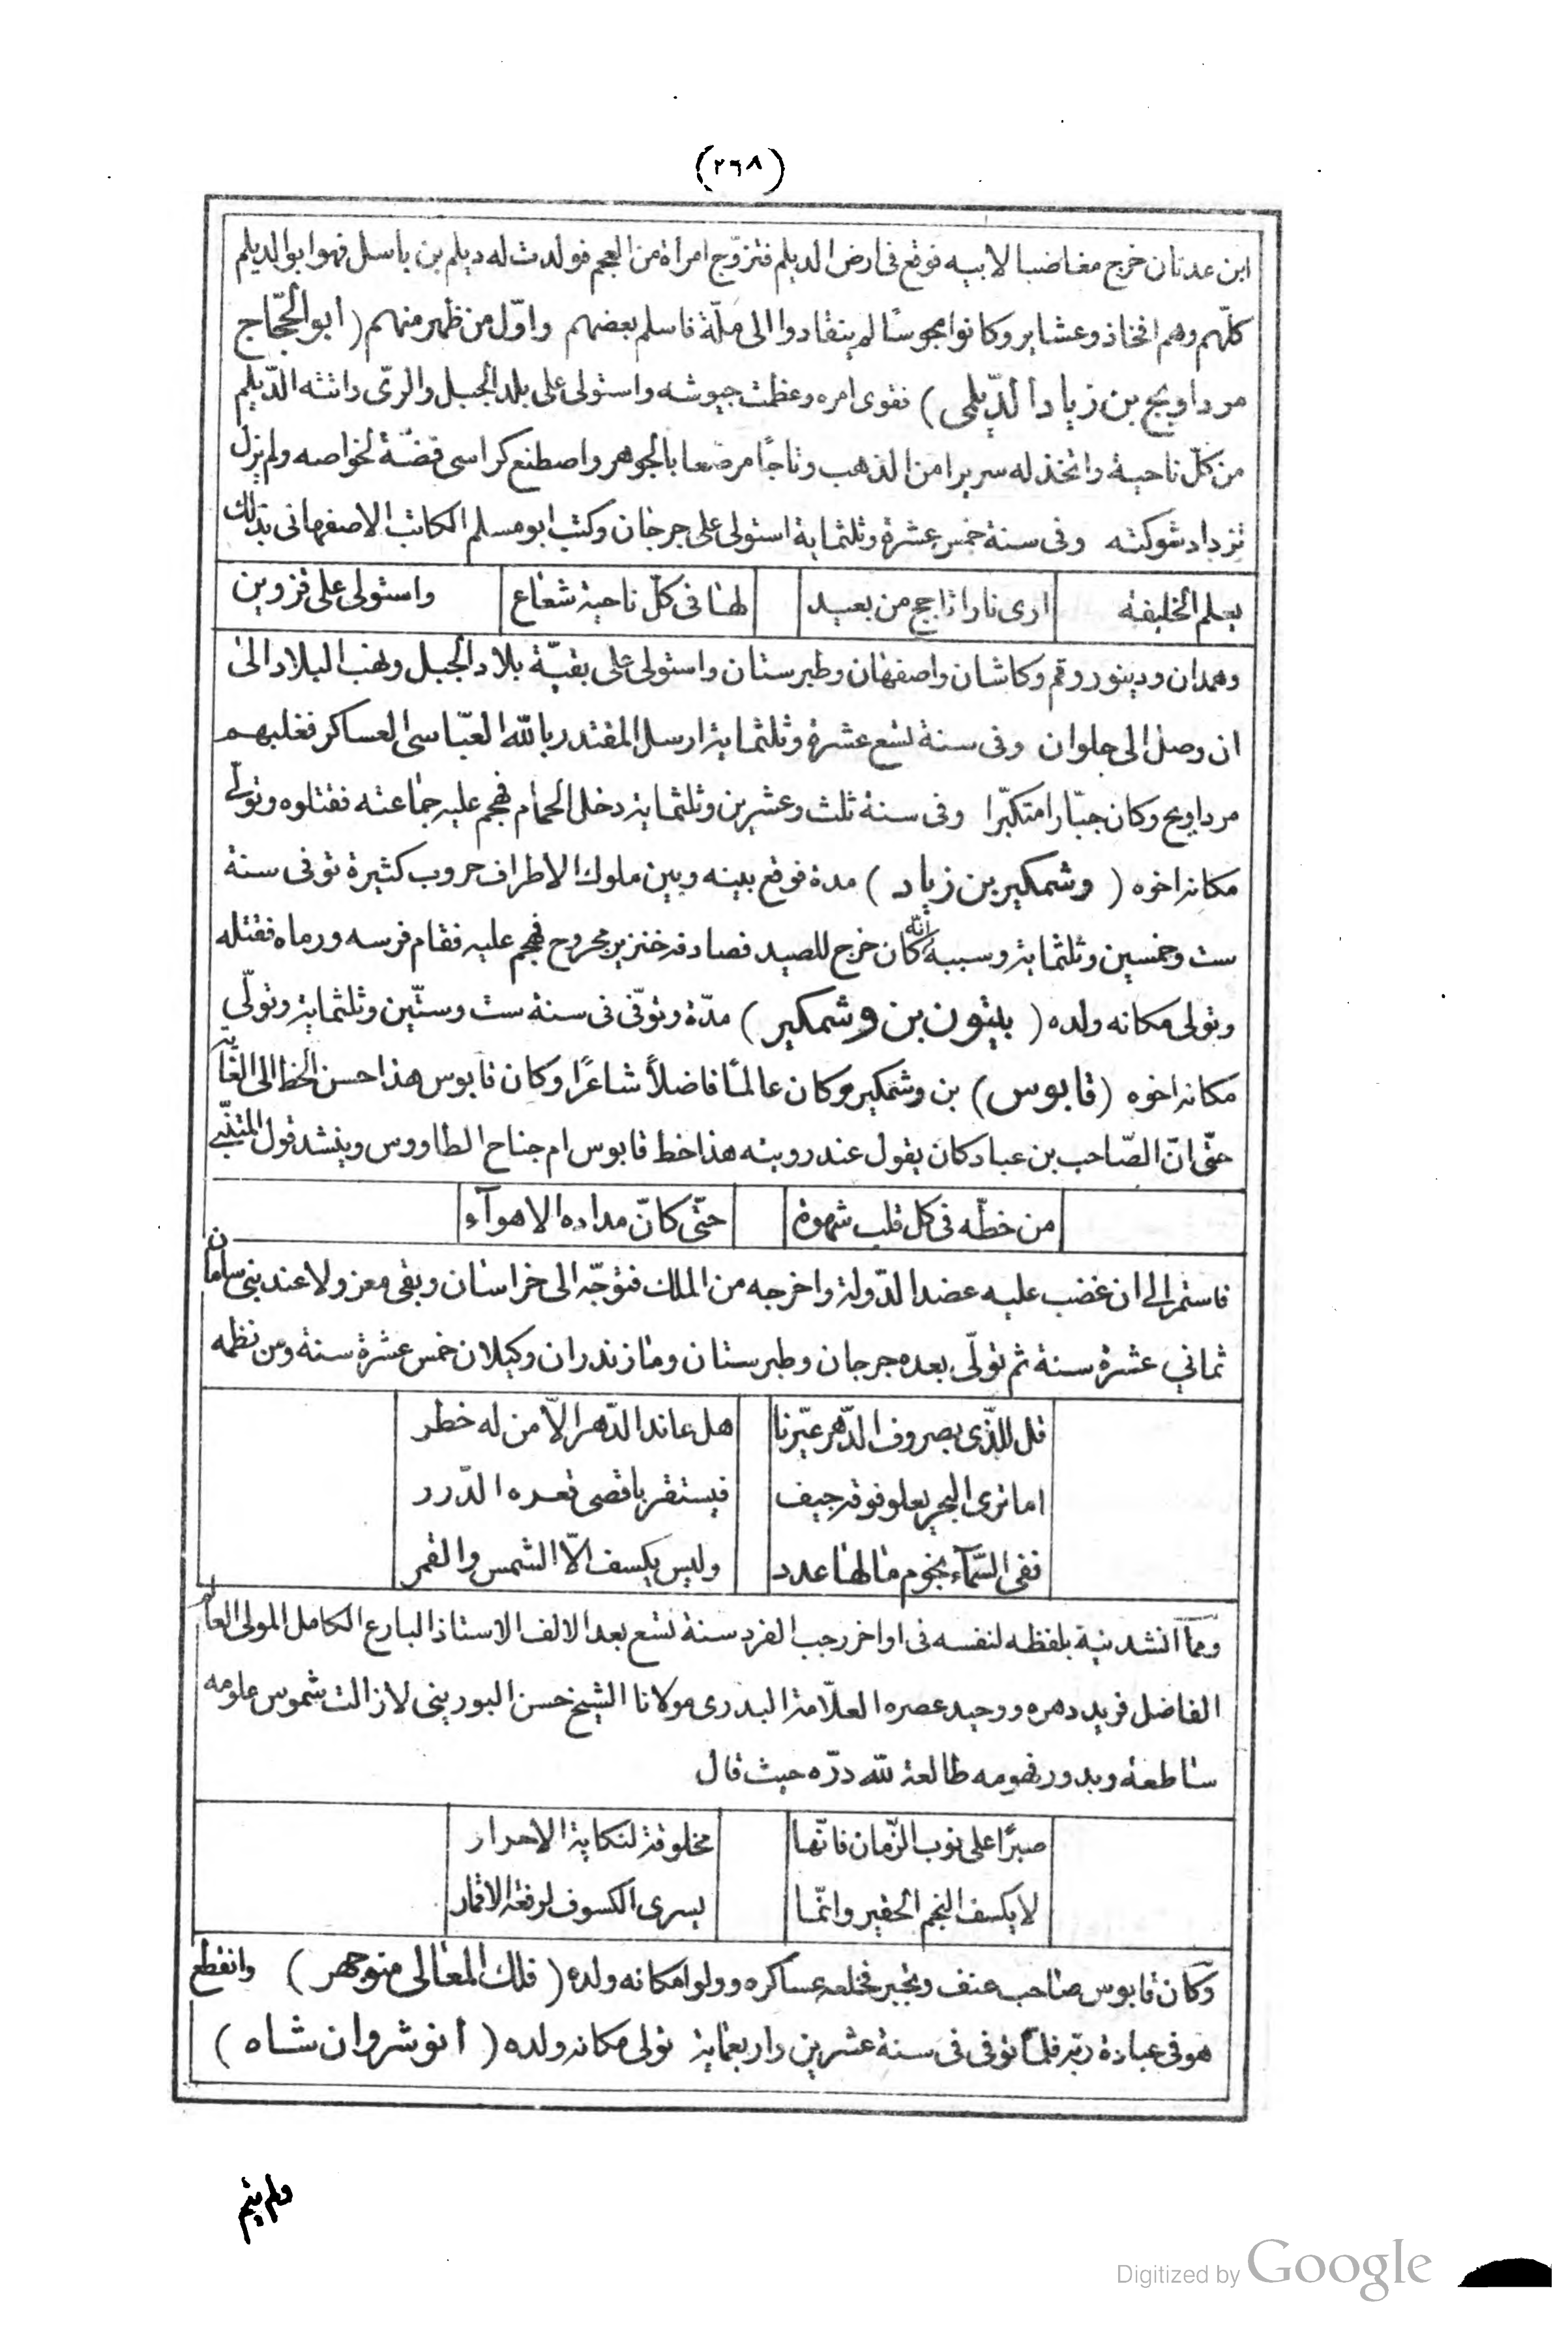 (٢٦٨)
ابن عدنان خرج مغاضبا لابيه فوقع فى ارض الديلم فتزوّج امرأة من العجم فولدت له ديلم بن باسل فهو ابو الديلم
كلّهم وهم افخاذ وعشاير وكانوا مجوسًا لم ينقادوا الى ملّة فاسلم بعضهم واوّل من ظهر منهم (ابو الحجّاج
مرداويج بن زياد الدّيلمى) فقوى امره وعظمت جيوشه واستولى على بلد الجبل والرىّ واتته الدّيلم
من كلّ ناحية واتخذ له سريرا من الذهب وتاجًا مرصعا بالجوهر واصطنع كراسى فضّة لخواصه ولم يزل
تزداد شوكته وفى سنة خمس عشرة وثلثماية استولى على جرجان وكتب ابو مسلم الكاتب الاصفهانى بذلك
يعلم الخليفة ارى نارا تاجج من بعيد لها فى كلّ ناحية شعاع واستولى على قزوين
وهمدان ودينور وقم وكاشان واصفهان وطبرستان واستولى على بقيّة بلاد الجبل ونهب البلاد الى
ان وصل الى حلوان وفى سنة تسع عشرة وثلثماية ارسل المقتدر بالله العبّاسى العساكر فغلبهم
مرداويج وكان جبّارا متكبّرا وفى سنة ثلث وعشرين وثلثماية دخل الحمام فهجم عليه جماعته فقتلوه وتولّى
مكانه اخوه (وشمكير بن زياد) مدة فوقع بينه وبين ملوك الاطراف حروب كثيرة توفى سنة
ست وخمسين وثلثماية وسببه انّه كان خرج للصيد فصادفه خنزير مجروح فهجم عليه فقام فرسه ورماه فقتله
وتولى مكانه ولده (بيتون بن وشمكير) مدّة وتوفّى فى سنة ست وستّين وثلثماية وتولّى
مكانه اخوه (قابوس) بن وشمكير وكان عالمًا فاضلاً شاعرًا وكان قابوس هذا حسن الخط الى الغاية
حتّى انّ الصّاحب بن عباد كان يقول عند رويته هذا خط قابوس ام جناح الطاووس وينشد قول المتنبّى
من خطّه فى كل قلب شهوة حتّى كانّ مداده الاهوآء
فاستمر الى ان غضب عليه عضد الدّولة واخرجه من الملك فتوجّه الى خراسان وبقى معزولا عند بنى سامان
ثمانى عشرة سنة ثم تولّى بعده جرجان وطبرستان ومازندران وكيلان خمس عشرة سنة ومن نظمه
قل للذّى بصروف الدّهر عيّرنا هل عاند الدّهر الاّ من له خطر
اما ترى البحر يعلو فوقه جيف فيستقر باقصى قعره الدّرر
ففى السّمآء نجوم مالها عدد وليس يكسف الاّ الشمس والقمر
وممّا انشدنيه بلفظه لنفسه فى اواخر رجب الفرد سنة تسع بعد الالف الاستاذ البارع الكامل المولى العالم
الفاضل فريد دهره ووحيد عصره العلّامة البدرى مولانا الشيخ حسن البورينى لازالت شموس علومه
ساطعة وبدور فهومه طالعة لله درّه حيث قال
صبرًا على نوب الزّمان فانّها مخلوقة لنكاية الاحرار
لا يكسف النجم الحقير وانّما يسرى الكسوف لرفعة الاقمار
وكان قابوس صاحب عنف وتجبر فخلعه عساكره وولوا مكانه ولده (فلك المعالى منوجهر) وانقطع
هو فى عبادة ربّه فلمّا توفى فى سنة عشرين واربعماية تولى مكانه ولده (انوشروان شاه)
ولم يتم
Digitized by Google